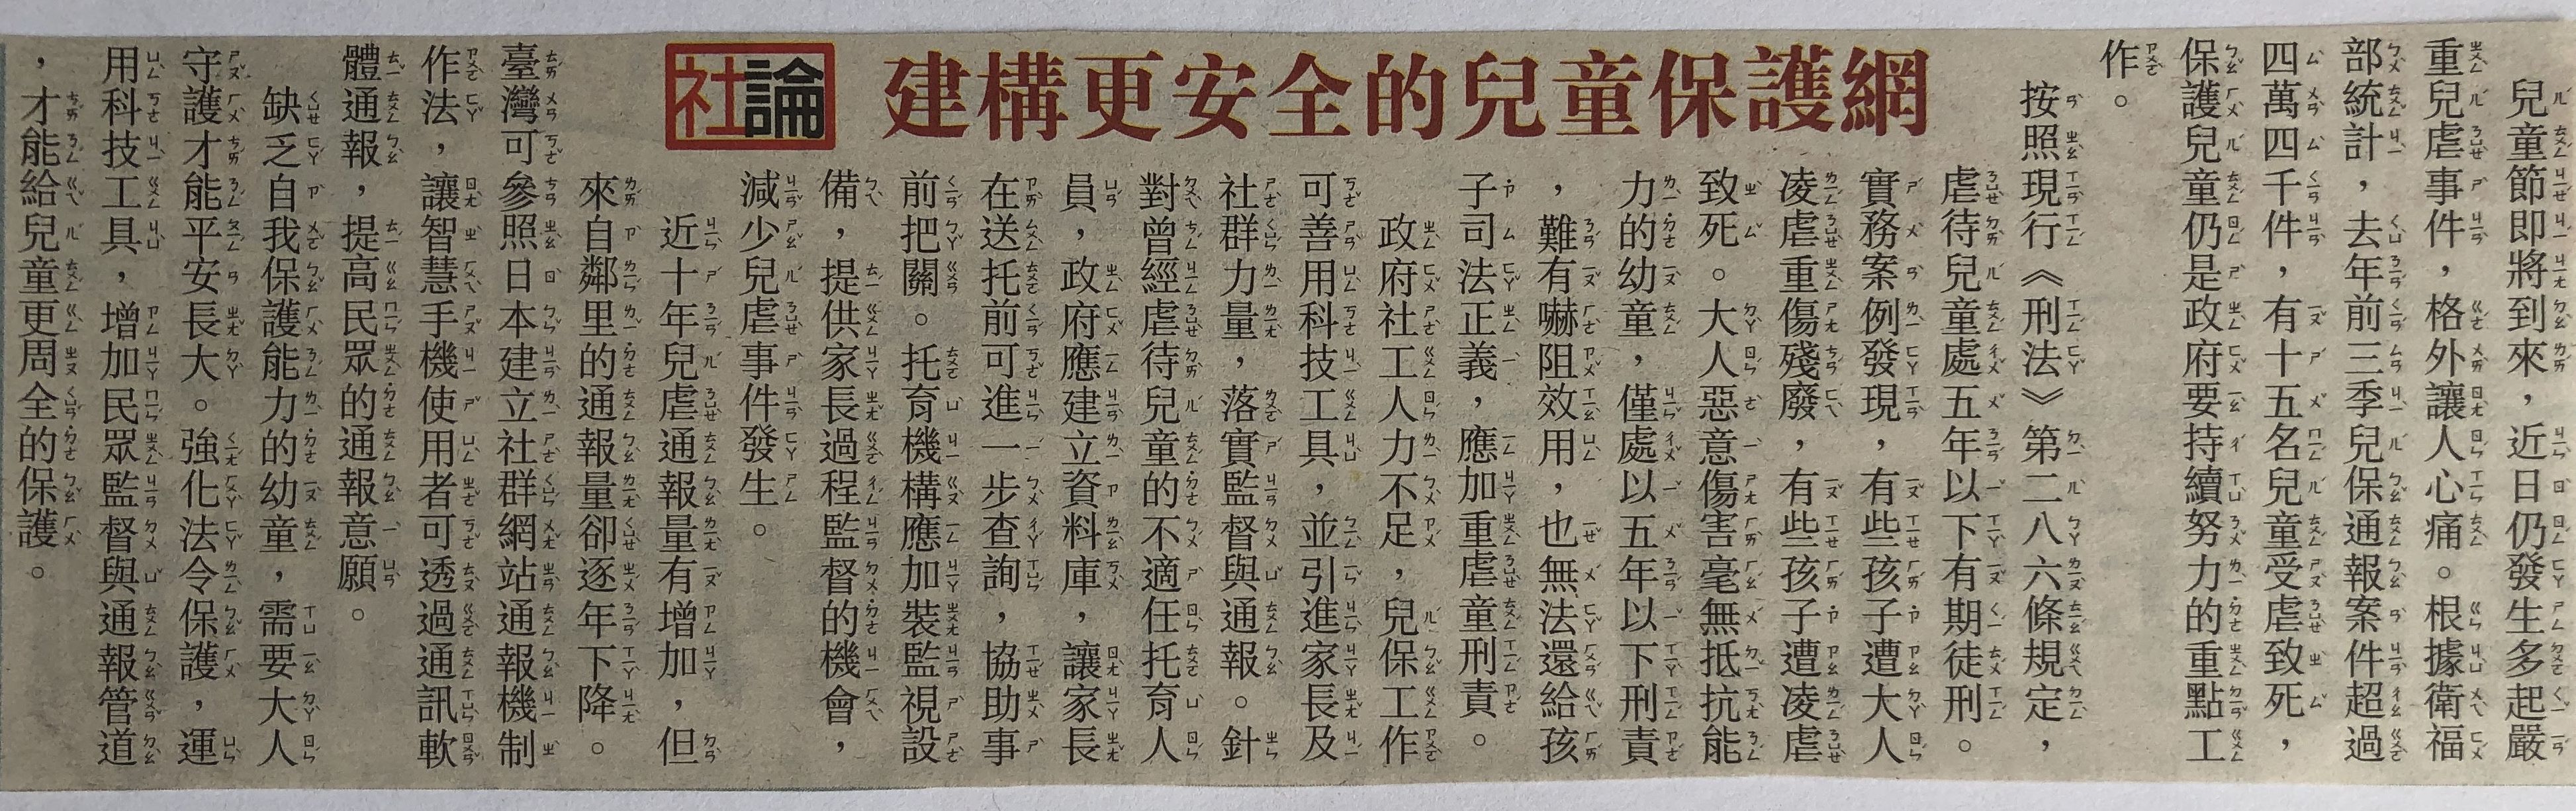 社論
建構更安全的兒童保護網
兒童節即將到來，近日仍發生多起嚴
重兒虐事件，格外讓人心痛。根據衛福
部統計，去年前三季兒保通報案件超過
四萬四千件，有十五名兒童受虐致死，
保護兒童仍是政府要持續努力的重點工
作。
按照現行《刑法》第二八六條規定，
虐待兒童處五年以下有期徒刑。
實務案例發現，有些孩子遭大人
凌虐重傷殘廢，有些孩子遭凌虐
致死。大人惡意傷害毫無抵抗能
力的幼童，僅處以五年以下刑責
，難有嚇阻效用，也無法還給孩
子司法正義，應加重虐童刑責。
政府社工人力不足，兒保工作
可善用科技工具，並引進家長及
社群力量，落實監督與通報。針
對曾經虐待兒童的不適任托育人
員，政府應建立資料庫，讓家長
在送托前可進一步查詢，協助事
前把關。托育機構應加裝監視設
備，提供家長過程監督的機會，
減少兒虐事件發生。
近十年兒虐通報量有增加，但
來自鄰里的通報量卻逐年下降。
臺灣可參照日本建立社群網站通報機制
作法，讓智慧手機使用者可透過通訊軟
體通報，提高民眾的通報意願。
缺乏自我保護能力的幼童，需要大人
守護才能平安長大。強化法令保護，運
用科技工具，增加民眾監督與通報管道
，才能給兒童更周全的保護。